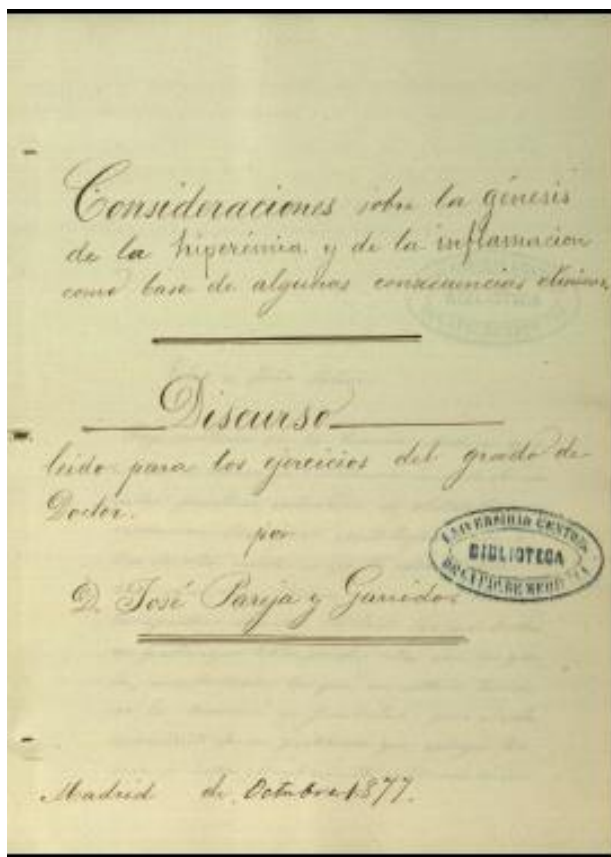 Consideraciones sobre la génesis
de la hiperémia y de la inflamacion
como base de algunas consecuencias clínicas,
Discurso
leido para los ejercicios del grado de
Doctor.
por
D. José Pareja y Garrido.
UNIVERSIDAD CENTRAL
BIBLIOTECA
DE MEDICINA
Madrid de Octubre 1877.